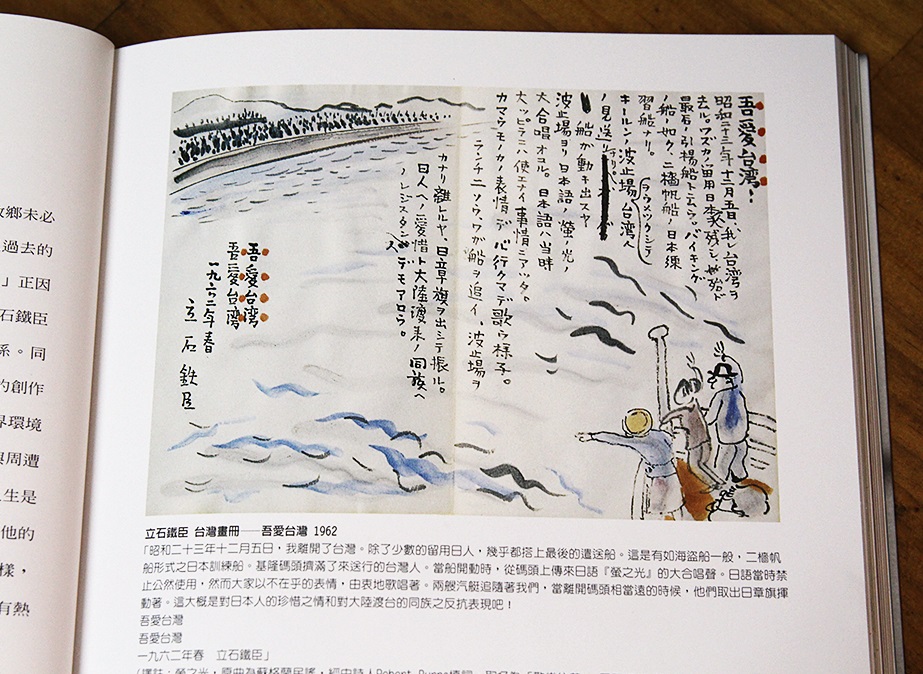 故鄉未必
過去的
」正因
石鐵臣
係。同
的創作
界環境
與周遭
生是
他的
樣，
有熱
吾愛台湾！
昭和二十三年十二月五日、我レ台湾ヲ
去ル。ワズカノ留用日本家ヲ残シ、殆ド
最后ノ引揚船 バイキング
ノ船ノ如ク、二檣帆船ノ日本練
習船ナリ。
ヲウメツクシテ
キールンノ波止場 台湾人
ノ見送リ
船ガ動キ出スヤ
波止場ヨリ日本語ノ螢ノ光ノ
大合唱オコル。日本語ハ当時
大ッピラニハ使エナイ事情ニアッタ。
カマウモノカノ表情デ心行クマデ歌ウ様子。
ランチニソウ、ワガ船ヲ追イ、波止場ヲ
カナリ離レルヤ、日章旗ヲ出シテ振ル。
日人ヘノ愛惜ト大陸渡来ノ同族ヘ
ノレジスタンスデモアロウ。
吾愛台湾
吾愛台湾
一九六二年春
立石鉄臣
立石鐵臣 台灣畫冊──吾愛台灣 1962
「昭和二十三年十二月五日，我離開了台灣。除了少數的留用日人，幾乎都搭上最後的遣送船。這是有如海盜船一般，二檣帆
船形式之日本訓練船。基隆碼頭擠滿了來送行的台灣人。當船開動時，從碼頭上傳來日語『螢之光』的大合唱聲。日語當時禁
止公然使用，然而大家以不在乎的表情，由衷地歌唱著。兩艘汽艇追隨著我們，當離開碼頭相當遠的時候，他們取出日章旗揮
動著。這大概是對日本人的珍惜之情和對大陸渡台的同族之反抗表現吧！
吾愛台灣
吾愛台灣
一九六二年春　立石鐵臣」